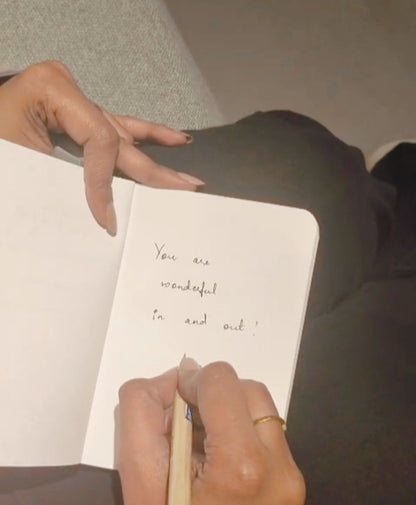 You are
wonderful
in and out !